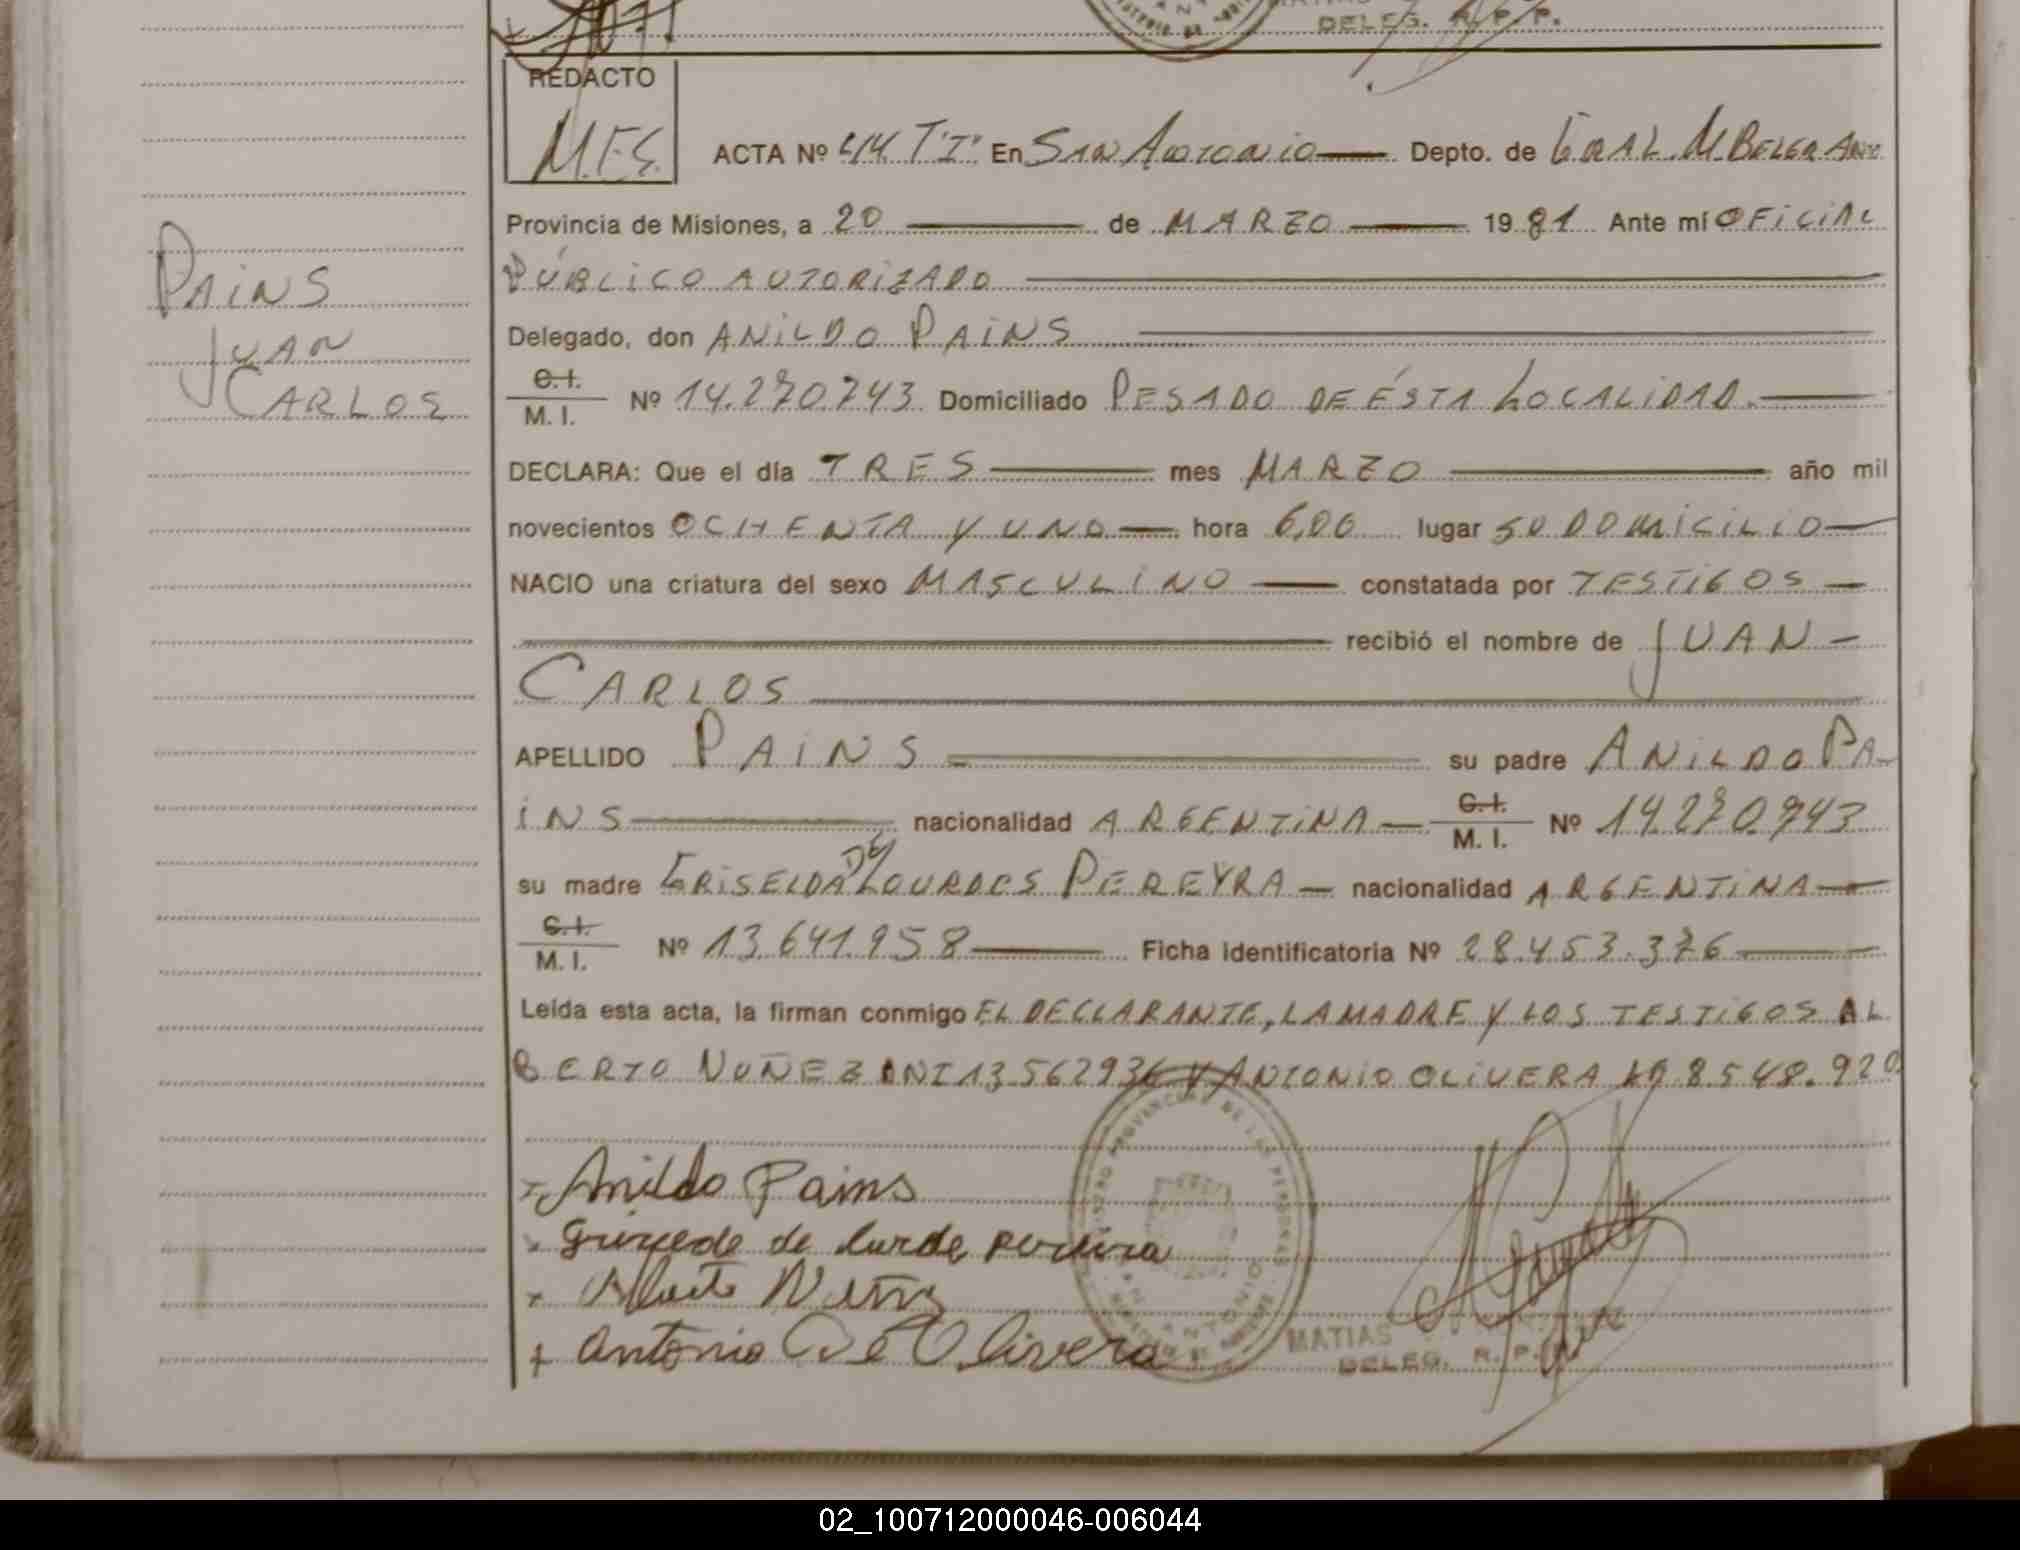 DELEG. R. P. P.
REDACTO
M.E.S.
ACTA Nº 414 T"I" En SAN ANTONIO Depto. de GRAL. M. BELGRANO
Provincia de Misiones, a 20 de MARZO 1981 Ante mí OFICIAL
PÚBLICO AUTORIZADO
Delegado, don ANILDO PAINS
C.I. / M. I. Nº 14.270.743 Domiciliado PESADO DE ÉSTA LOCALIDAD.
DECLARA: Que el día TRES mes MARZO año mil
novecientos OCHENTA Y UNO hora 6,00 lugar SU DOMICILIO
NACIO una criatura del sexo MASCULINO constatada por TESTIGOS
recibió el nombre de JUAN
CARLOS
APELLIDO PAINS su padre ANILDO PA-
INS nacionalidad ARGENTINA C.I. / M. I. Nº 14.270.743
su madre GRISELDA DE LOURDES PEREYRA nacionalidad ARGENTINA
C.I. / M. I. Nº 13.641.958 Ficha identificatoria Nº 28.453.376
Leída esta acta, la firman conmigo EL DECLARANTE, LA MADRE Y LOS TESTIGOS AL
BERTO NUÑEZ DNI 13.562936 Y ANTONIO OLIVERA 8.548.920
PAINS
JUAN
CARLOS
Anildo Pains
de lurde pereira
Alberto Nuñez
Antonio De Olivera
SAN ANTONIO
MATIAS
DELEG. R. P. P.
02_100712000046-006044